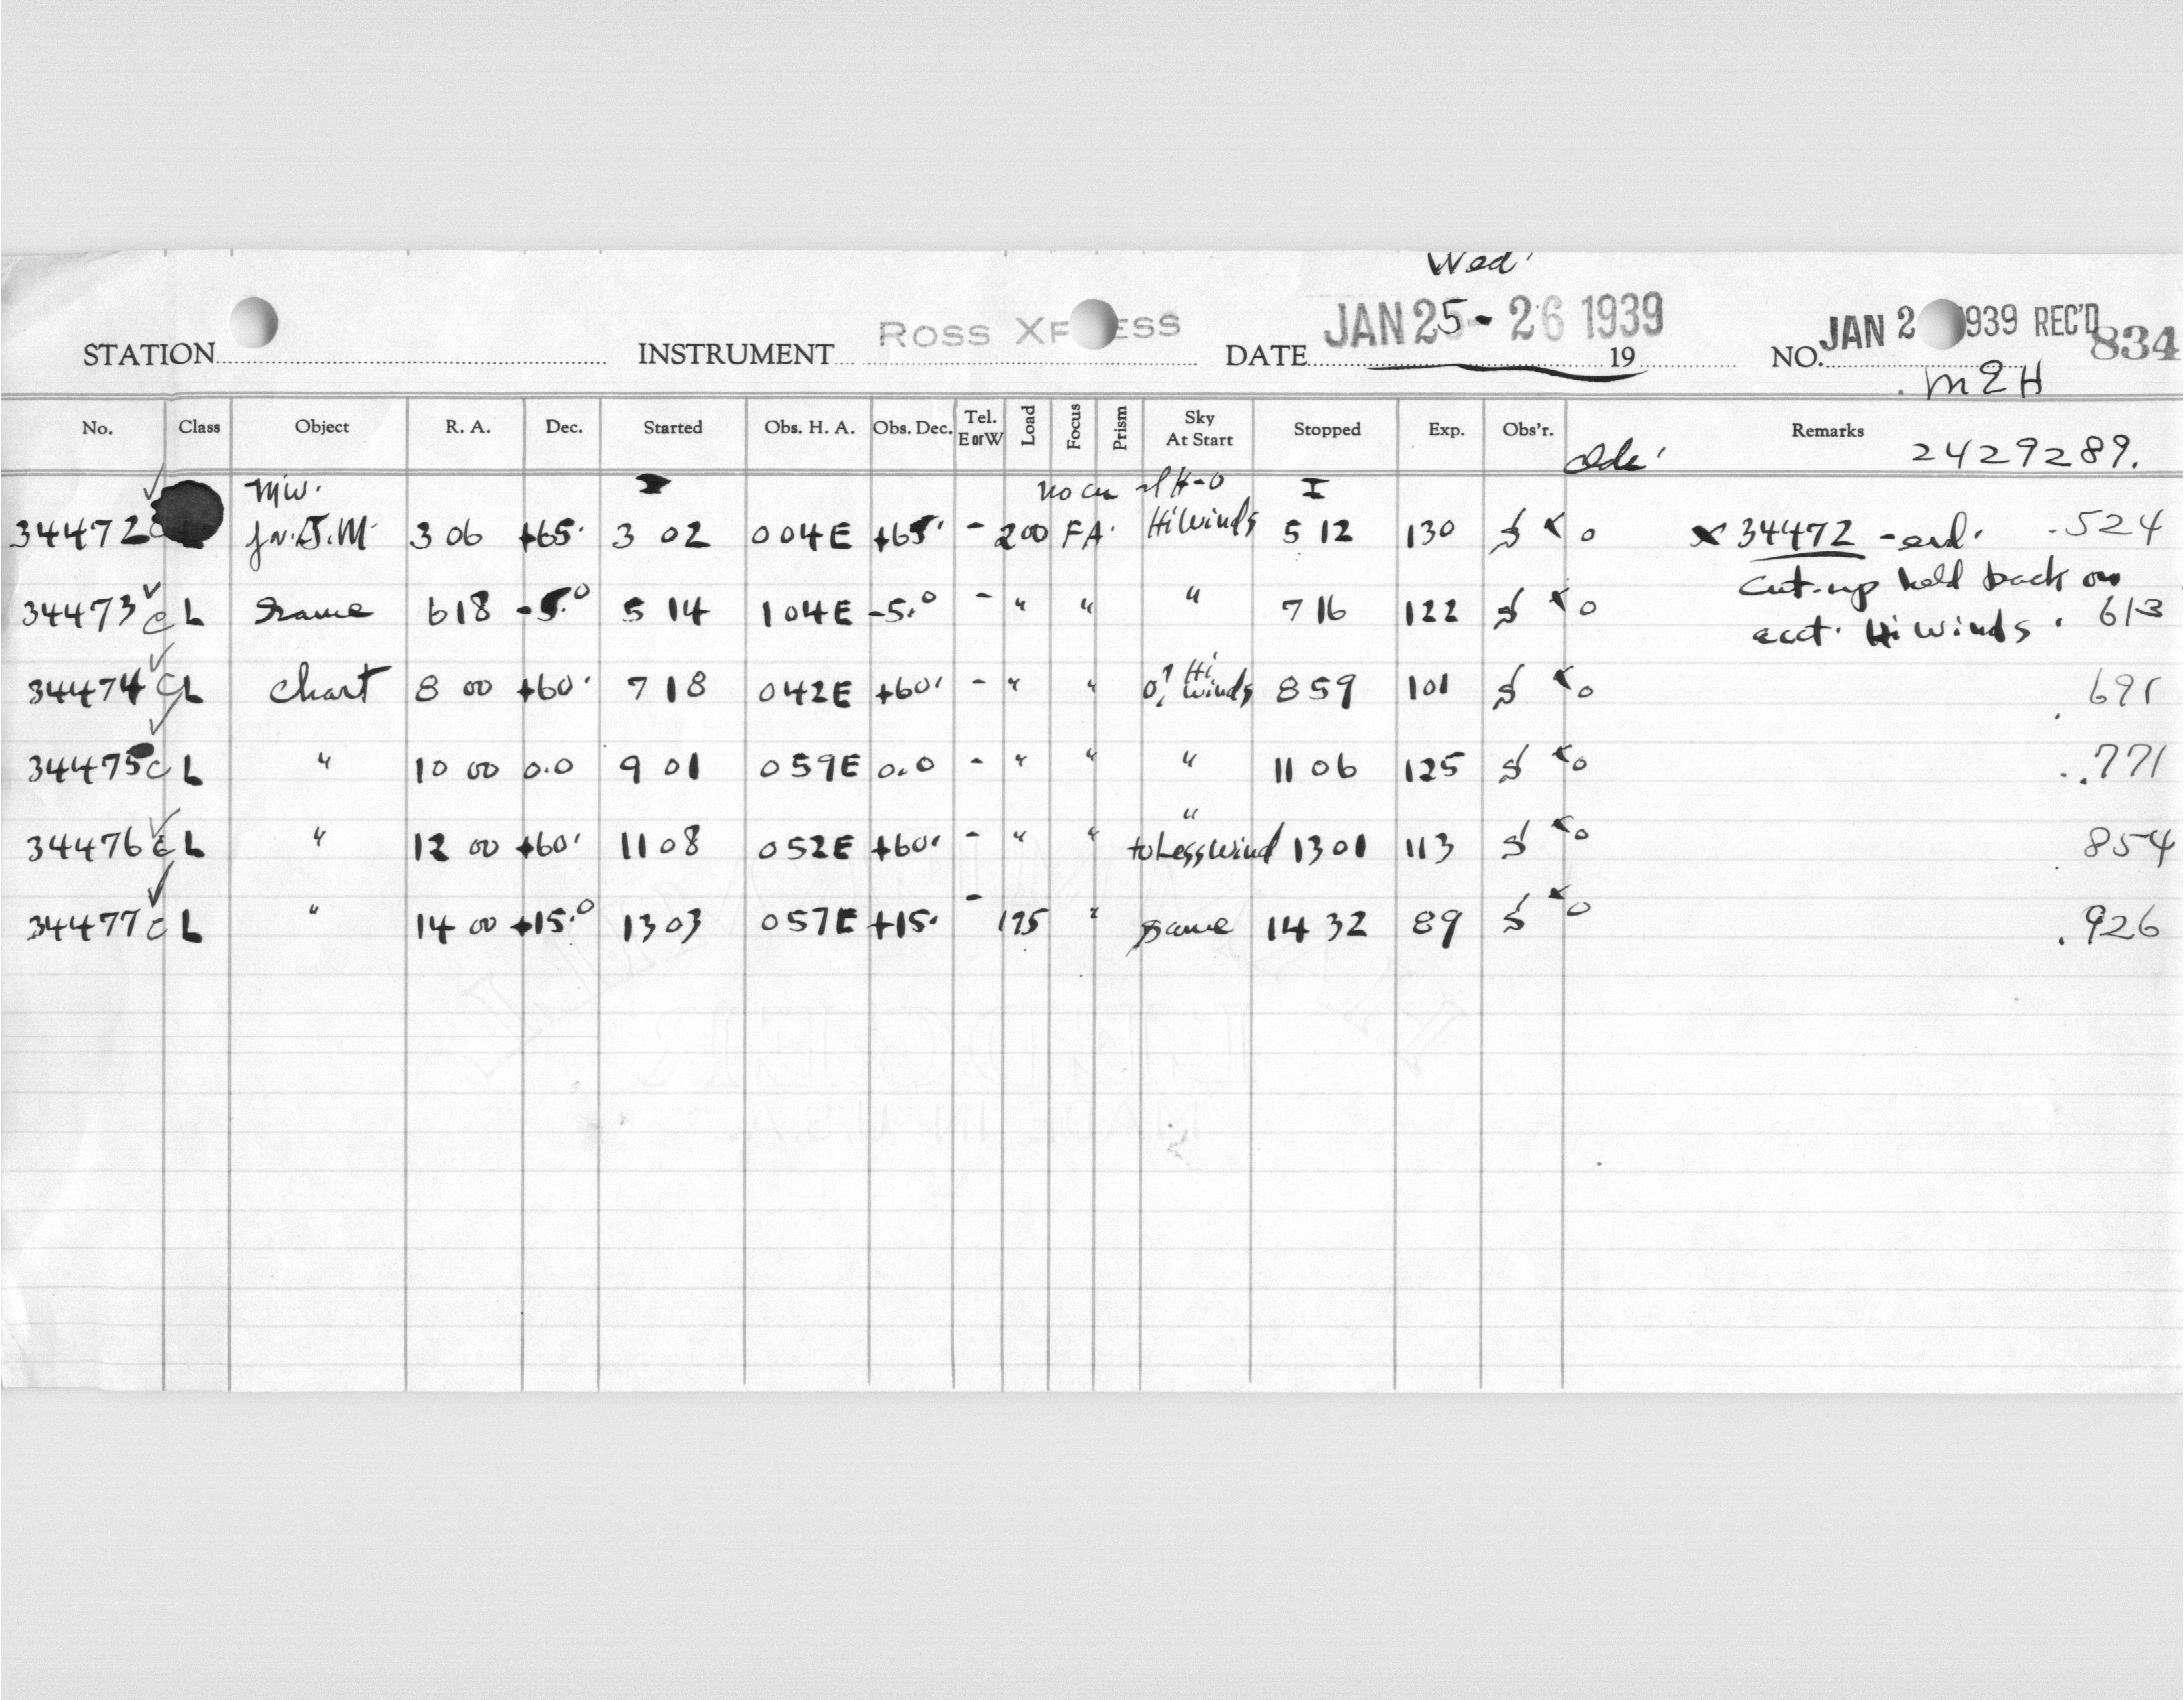 Wed'
STATION INSTRUMENT ROSS XF ESS DATE JAN 25-26 1939 19 NO. JAN 2 939 REC'D 834
M2H
No. Class Object R. A. Dec. Started Obs. H. A. Obs. Dec. Tel. E or W Load Focus Prism Sky At Start Stopped Exp. Obs'r. Remarks
2429289.
MW. I no I
34472 L 3 06 +65. 3 02 004E +65. - 200 FA. Hi Winds 5 12 130 S x 0 x 34472 - end. .524
cut-up held back on
34473 c L Same 618 -5.0 5 14 104E -5.0 - " " " 7 16 122 S x 0 acct. Hi Winds . 613
34474 c L Chart 8 00 +60. 7 18 042E +60. - " " Hi Winds 8 59 101 S x 0 .691
34475 c L " 10 00 0.0 9 01 059E 0.0 - " " " 11 06 125 S x 0 .771
34476 c L " 12 00 +60. 11 08 052E +60. - " " " to Less Wind 13 01 113 S x 0 .854
34477 c L " 14 00 +15.0 13 03 057E +15. - 195 " Same 14 32 89 S x 0 .926
LEDGER
MADE IN U.S.A.